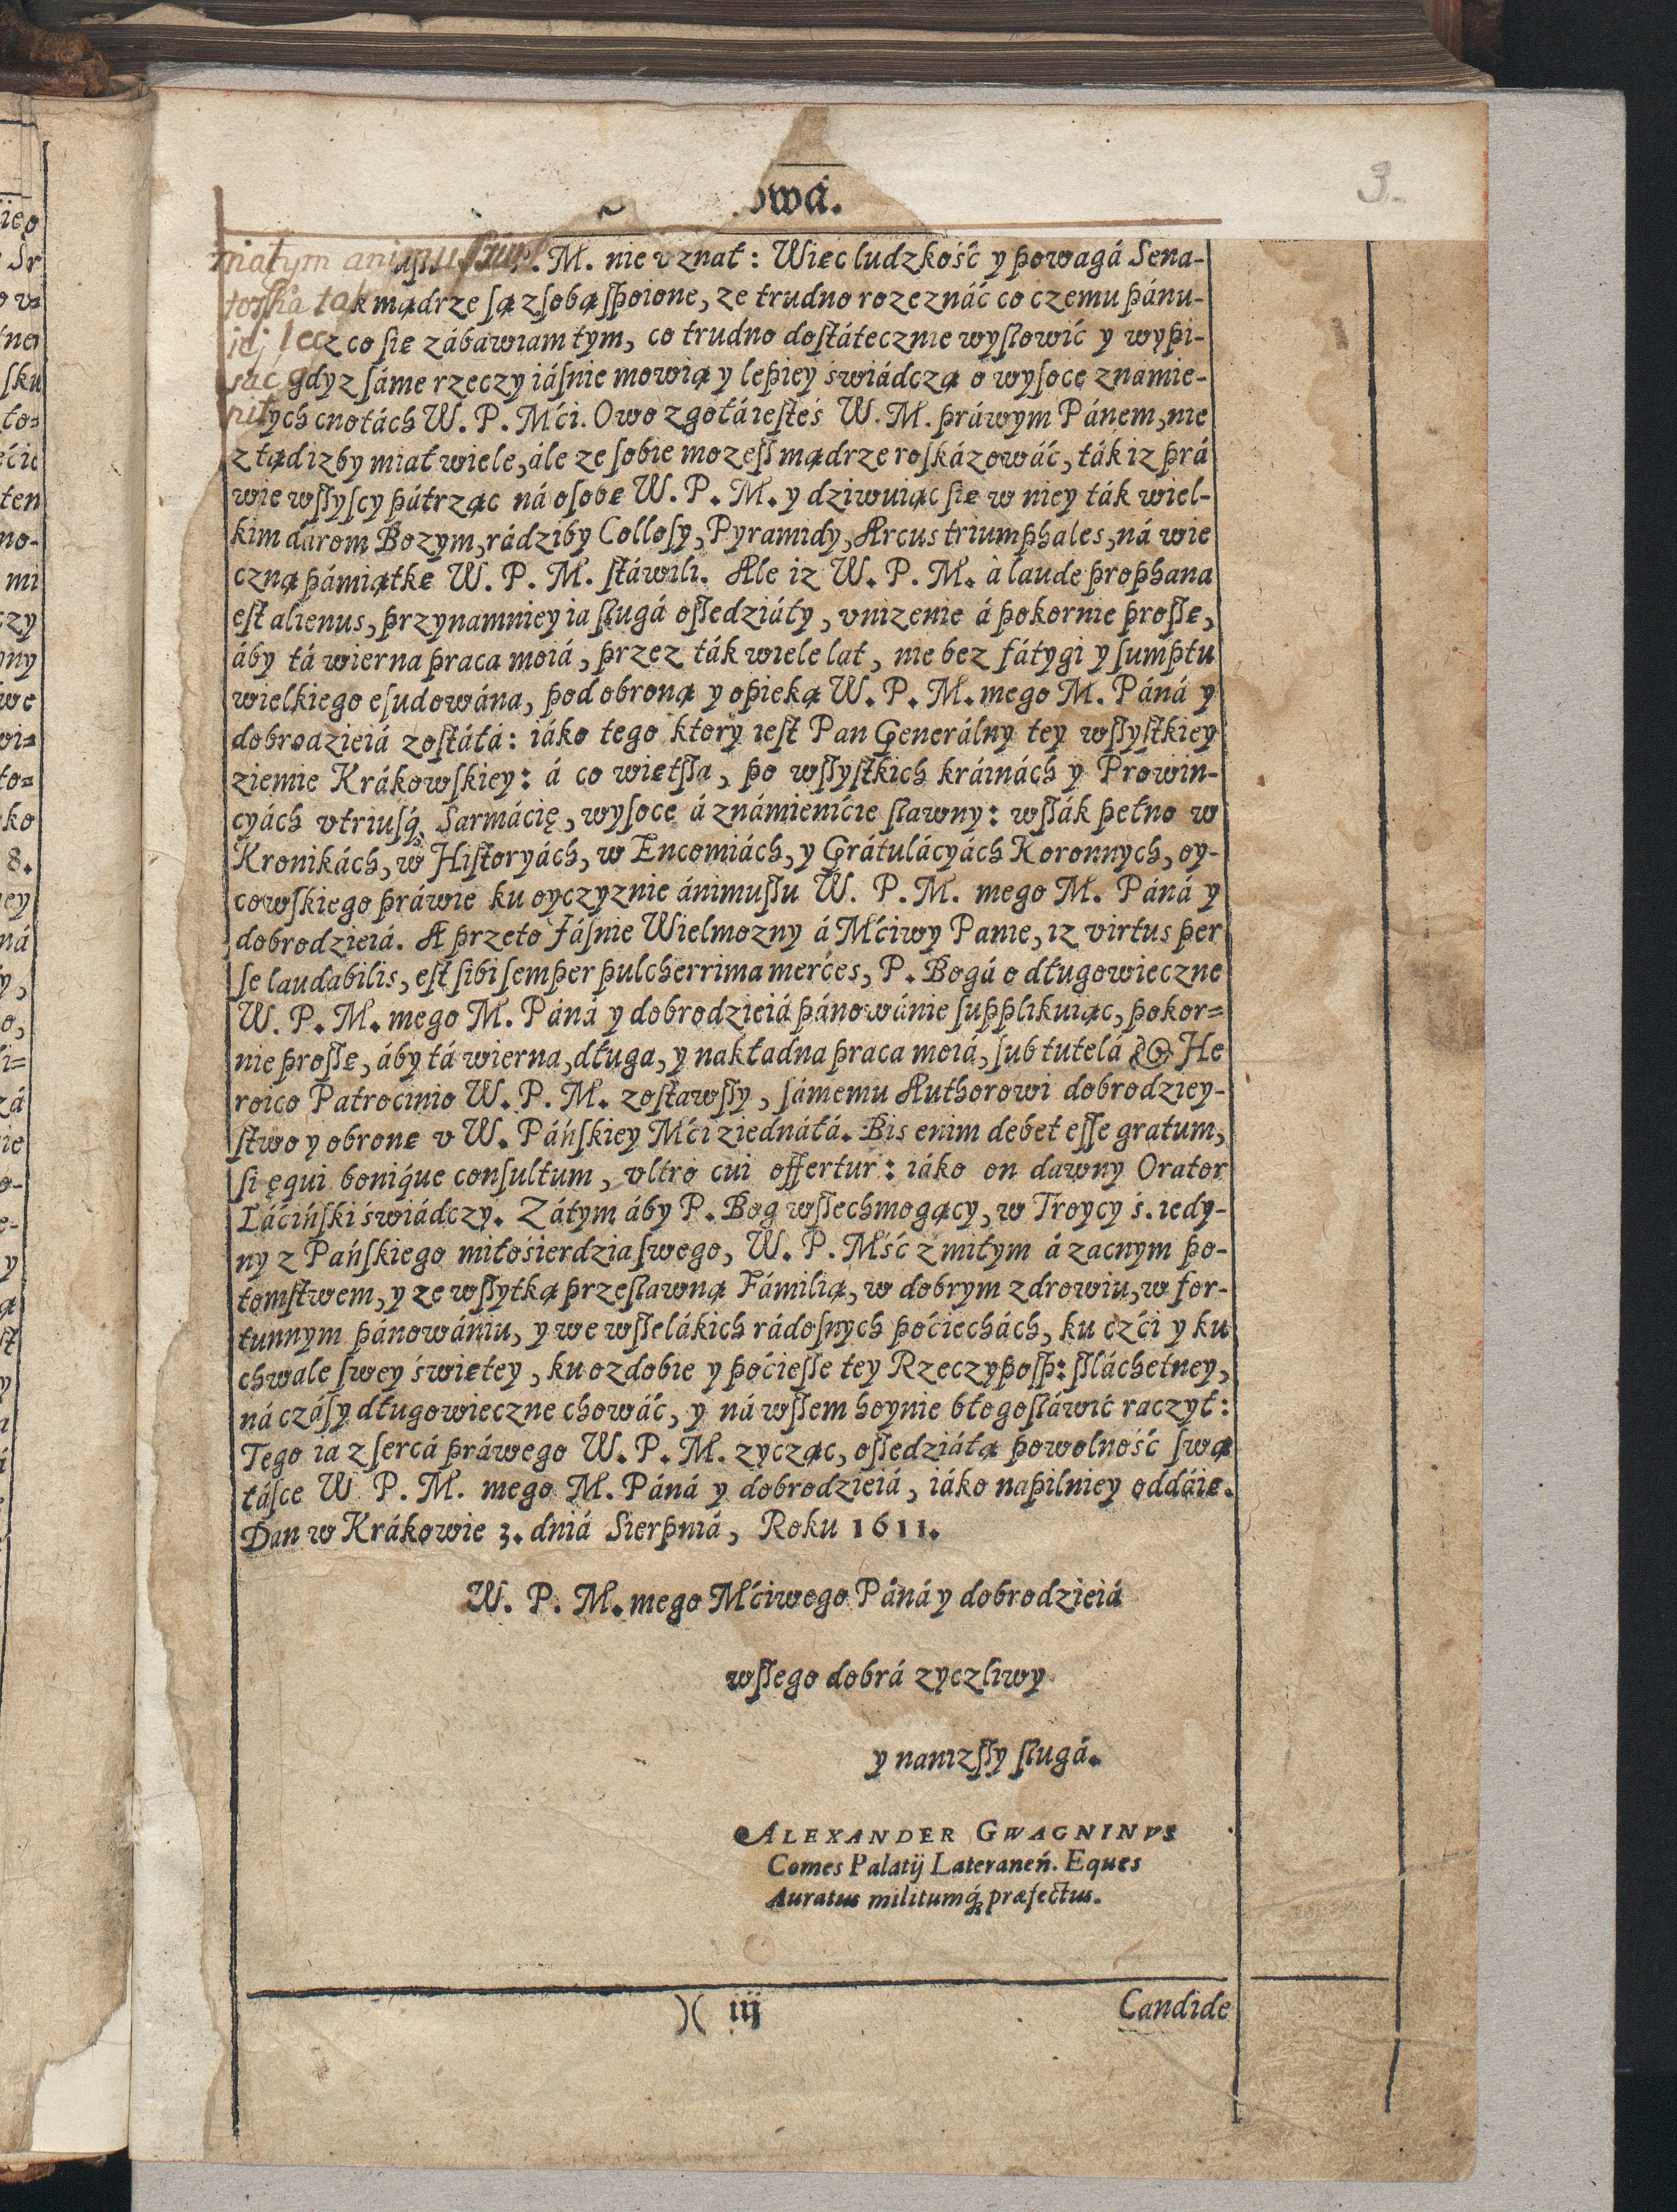 3.
owá.
małym animuſzu P. M. nie vznał: Wiec ludzkość y powagá Sena-
torſka tak mądrze ſą z ſobą ſpoione, ze trudno rozeznáć co czemu pánu-
ie; lecz co ſie zábawiam tym, co trudno doſtátecznie wyſłowić y wypi-
sać gdyz ſáme rzeczy iáſnie mowią y lepiey świádczą o wyſoce znamie-
nitych cnotách W. P. Mći. Owo zgołá ieſteś W. M. práwym Pánem, nie
z tąd izby miał wiele, ále ze ſobie mozeſſ mądrze roſkázowáć, ták iz prá
wie wſſyſcy pátrząc ná oſobe W. P. M. y dziwuiąc ſie w niey ták wiel-
kim dárom Bozym, rádziby Colloſy, Pyramidy, Arcus triumphales, ná wie
czną pámiątke W. P. M. ſtáwili. Ale iz W. P. M. à laude prophana
eſt alienus, przynamniey ia ſługá oſſedziáły, vnizenie á pokornie proſſe,
áby tá wierna praca moiá, przez ták wiele lat, nie bez fátygi y ſumptu
wielkiego eſudowána, pod obroną y opieką W. P. M. mego M. Páná y
dobrodzieiá zoſtáłá: iáko tego ktory ieſt Pan Generálny tey wſſyſtkiey
ziemie Krákowſkiey: á co wietſſa, po wſſyſtkich kráinách y Prowin-
cyách vtriuſq́ꝫ Sarmácię, wyſoce á známienićie ſławny: wſſák pełno w
Kronikách, w Hiſtoryách, w Encomiách, y Grátulácyách Koronnych, oy-
cowſkiego práwie ku oyczyznie ánimuſſu W. P. M. mego M. Páná y
dobrodzieiá. A przeto Jáſnie Wielmozny á Mćiwy Panie, iz virtus per
ſe laudabilis, eſt ſibi ſemper pulcherrima merces, P. Bogá o długowieczne
W. P. M. mego M. Páná y dobrodzieiá pánowánie ſupplikuiąc, pokor=
nie proſſe, áby tá wierna, długa, y nakładna praca moiá, ſub tutelá & He
roico Patrocinio W. P. M. zoſtawſſy, ſámemu Authorowi dobrodziey-
ſtwo y obrone v W. Páńſkiey Mći ziednáłá. Bis enim debet eſſe gratum,
ſi ęqui boniq́ue conſultum, vltro cui offertur: iáko on dawny Orator
Láćińſki świádczy. Zátym áby P. Bog wſſechmogący, w Troycy ś. iedy-
ny z Pańſkiego miłośierdzia ſwego, W. P. Mść z miłym á zacnym po-
tomſtwem, y ze wſſytką przeſławną Fámilią, w dobrym zdrowiu, w for-
tunnym pánowániu, y we wſſelákich rádoſnych poćiechách, ku czći y ku
chwale ſwey świetey, ku ozdobie y poćieſſe tey Rzeczypoſp: ſſláchetney,
ná czáſy długowieczne chowáć, y ná wſſem hoynie błogoſłáwić raczył:
Tego ia z ſercá práwego W. P. M. zycząc, oſſedziáłą powolność ſwą
łáſce W P. M. mego M. Páná y dobrodzieiá, iáko napilniey oddáie.
Dan w Krákowie 3. dniá Sierpniá, Roku 1611.
W. P. M. mego Mćiwego Páná y dobrodzieiá
wſſego dobrá zyczliwy
y nanizſſy ſługá.
ALEXANDER GWAGNINVS
Comes Palatij Lateraneń. Eques
Auratus militumq́ꝫ præfectus.
)( iij
Candide